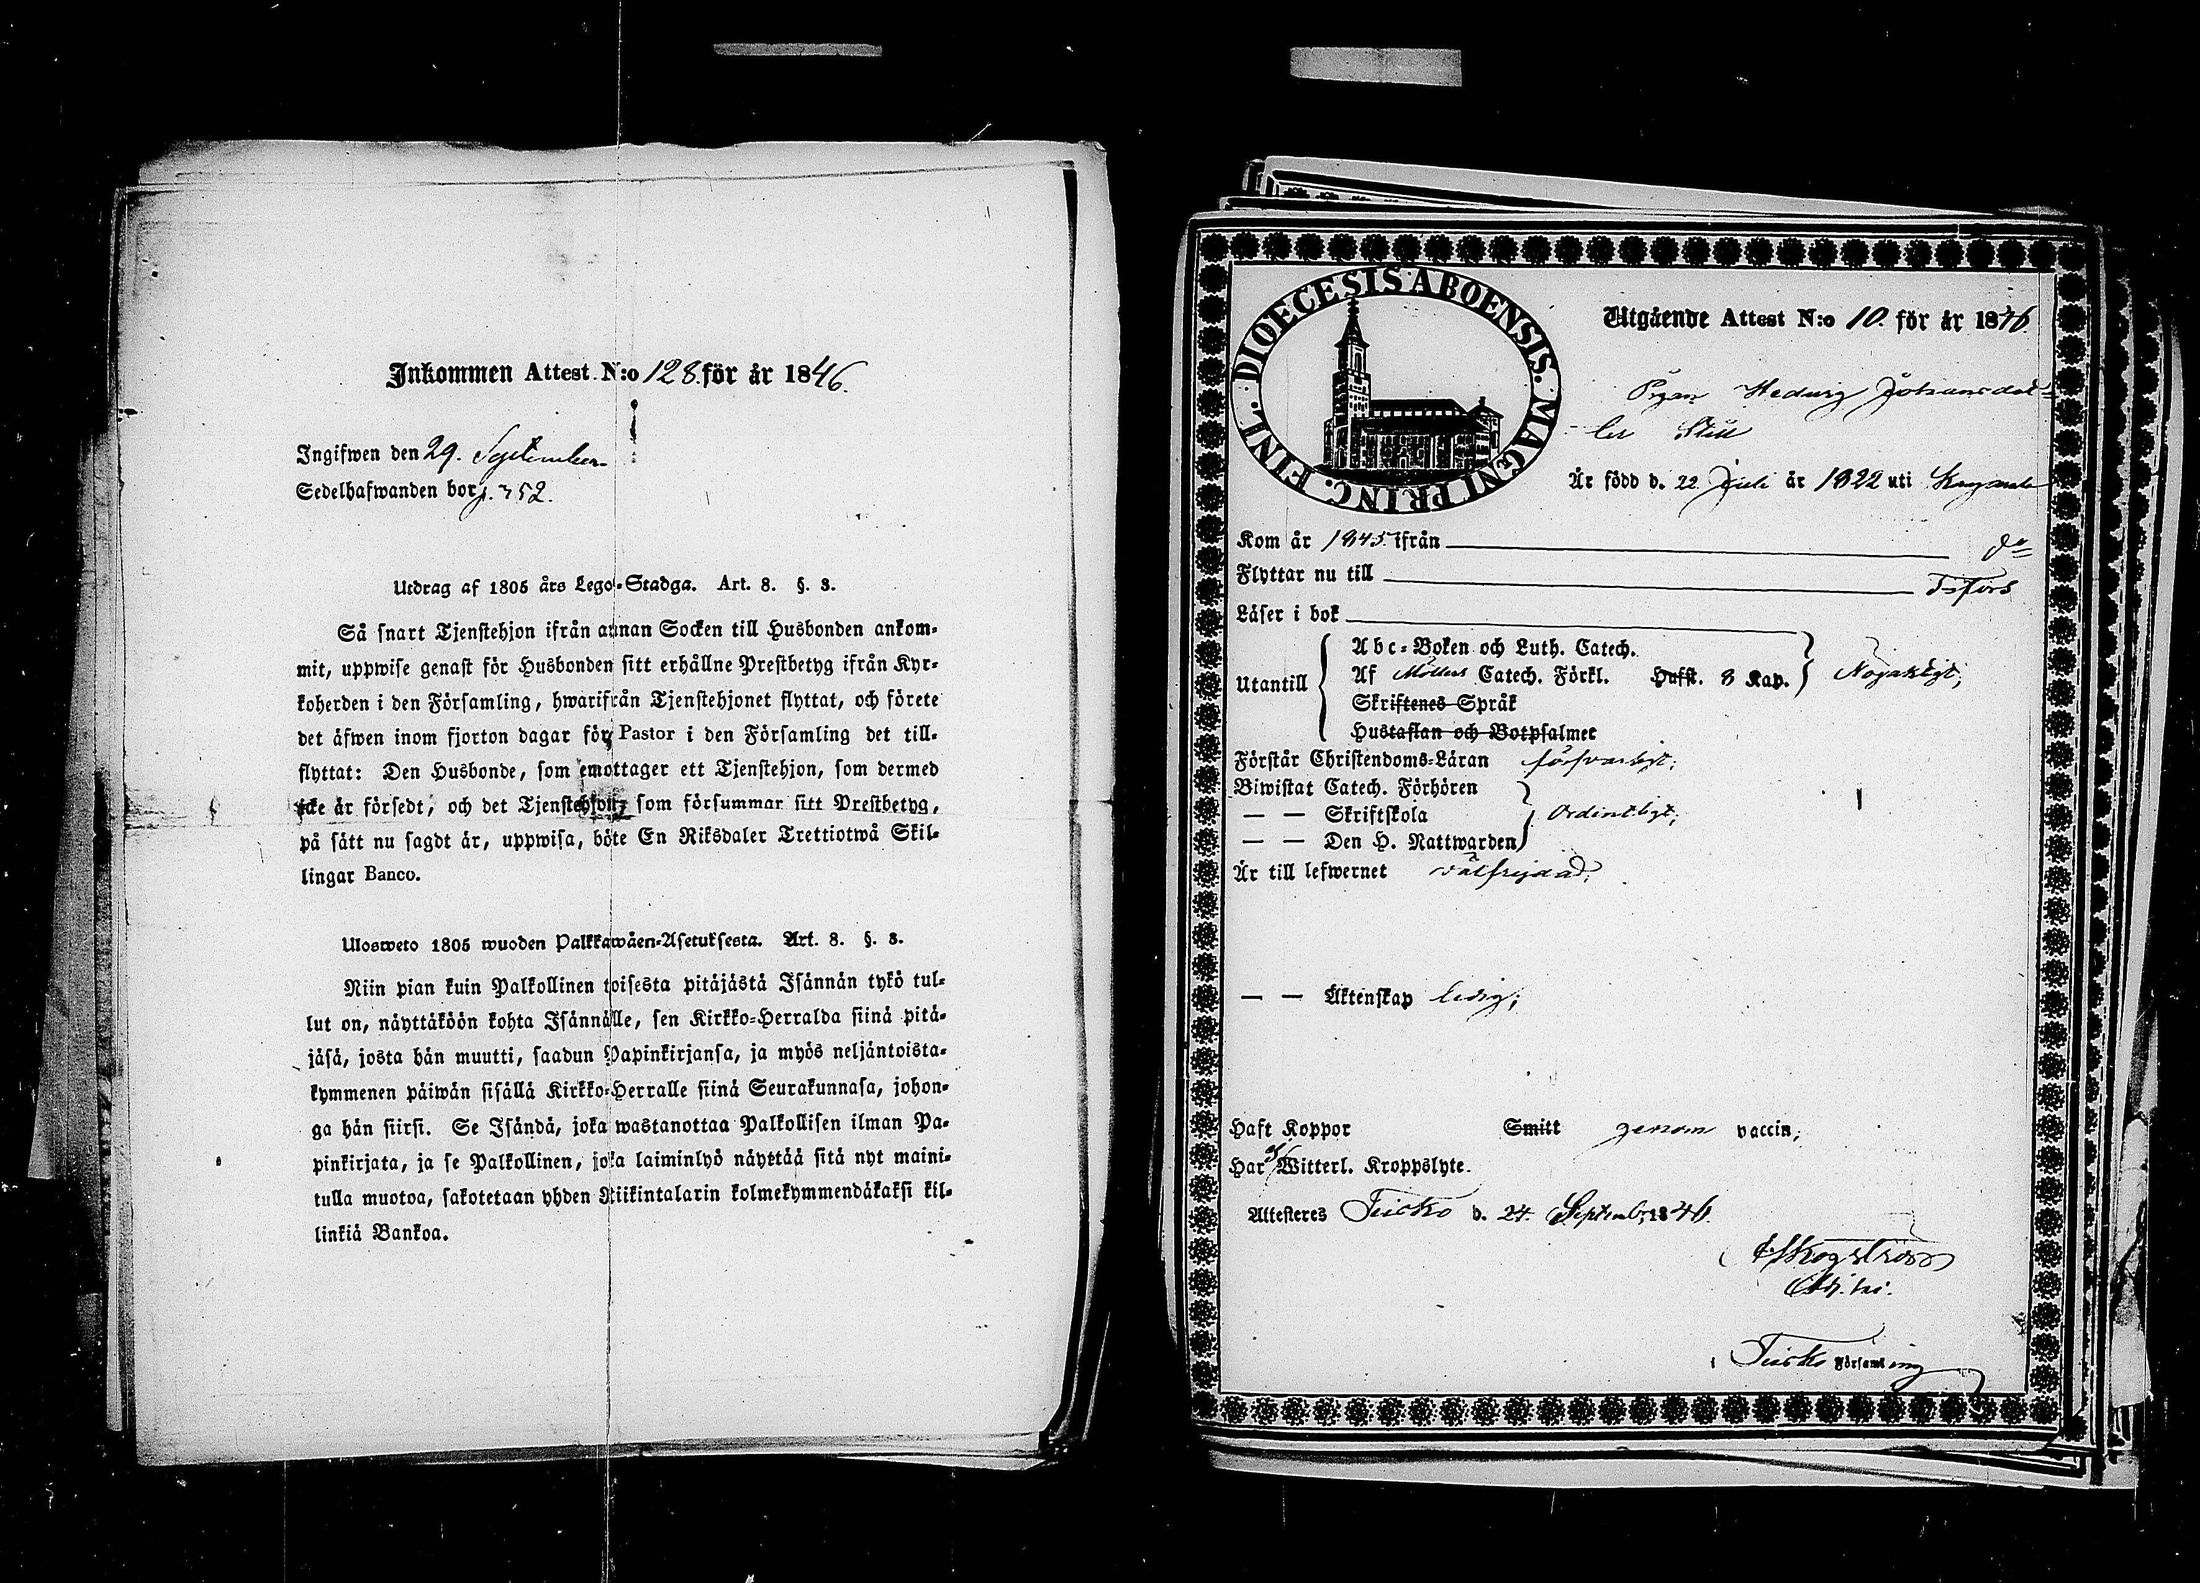 Inkommen Attest N:o 128. för år 1846.
Ingifwen den 29. September
Sedelhafwanden bor p. 352.
Utdrag af 1805 års Lego-Stadga. Art. 8. §. 3.
Så snart Tjenstehjon ifrån annan Socken till Husbonden ankom-
mit, uppwise genast för Husbonden sitt erhållne Prestbetyg ifrån Kyr-
koherden i den Församling, hwarifrån Tjenstehjonet flyttat, och förete
det äfwen inom fjorton dagar för Pastor i den Församling det till-
flyttat: Den Husbonde, som emottager ett Tjenstehjon, som dermed
icke är försedt, och det Tjenstehjon, som försummar sitt Prestbetyg,
på sätt nu sagdt är, uppwisa, böte En Riksdaler Trettiotwå Skil-
lingar Banco.
Ulosweto 1805 wuoden Palkkawäen-Asetuksesta. Art. 8. §. 3.
Niin pian kuin Palkollinen toisesta pitäjästä Isännän tykö tul-
lut on, näyttäköön kohta Isännälle, sen Kirkko-Herralda siinä pitä-
jäsä, josta hän muutti, saadun Papinkirjansa, ja myös neljäntoista-
kymmenen päiwän sisällä Kirkko-Herralle siinä Seurakunnasa, johon-
ga hän siirsi. Se Isändä, joka wastanottaa Palkollisen ilman Pa-
pinkirjata, ja se Palkollinen, joka laiminlyö näyttää sitä nyt maini-
tulla muotoa, sakotetaan yhden Riikintalarin kolmekymmendäkaksi kil-
linkiä Bankoa.
DIOECESIS ABOENSIS. MAGNI PRINC. FINL.
Utgående Attest N:o 10. för år 1846.
Pigan Hedvig Johansdot-
ter
Är född d. 22 Juli år 1822 uti
Kom år 1845. ifrån do
Flyttar nu till
Läser i bok
Utantill
Abc-Boken och Luth. Catech.
Af Möllers Catech. Förkl. Hufst. 8 Kap. Nöjaktigt;
Skriftenes Språk
Hustaflan och Botpsalmer
Förstår Christendoms-Läran försvarligt;
Biwistat Catech. Förhören
— — Skriftskola Ordentligt;
— — Den H. Nattwarden
Är till lefwernet välfrejdad;
— — Äktenskap ledig;
Haft Koppor Smitt genom vaccin;
Har ej Witterl. Kroppslyte.
Attesteres Tusko d. 24. Septemb. 1846.
Skogström
Adj.
i Tusko Församling